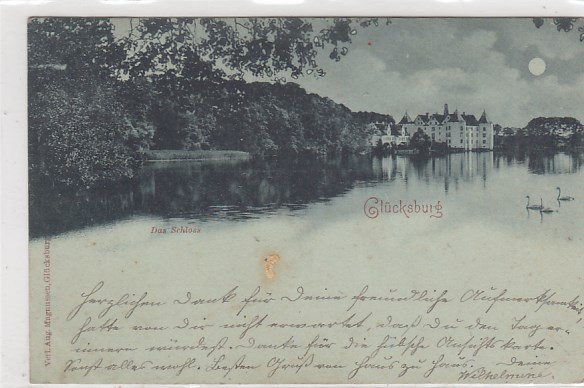 Glücksburg
Das Schloss
Verl. Aug. Magnussen, Glücksburg
Herzlichen Dank für Deine freundliche Aufmerksamkeit
hatte von dir nicht erwartet, daß du den Tag er-
innern würdest. Danke für die hübsche Ansichtskarte.
Sonst alles wohl. Besten Gruß von Haus zu Haus. Deine
Wilhelmine.